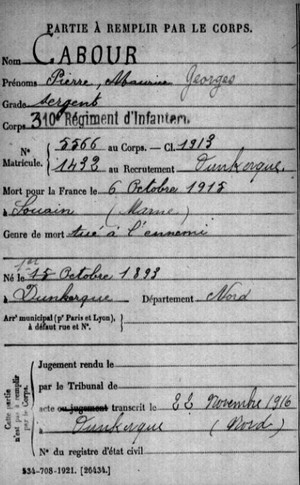 PARTIE À REMPLIR PAR LE CORPS.
Nom CABOUR
Prénoms Pierre, Maurice Georges
Grade Sergent
Corps 310e Régiment d'Infanterie
N° 5566 au Corps. — Cl. 1913
Matricule. 1432 au Recrutement Dunkerque.
Mort pour la France le 6 Octobre 1915
à Souain (Marne)
Genre de mort tué à l'ennemi
Né le Octobre 1893
à Dunkerque Département Nord
Arrt municipal (pr Paris et Lyon),
à défaut rue et N°.
Cette partie n'est pas à remplir par le Corps.
Jugement rendu le
par le Tribunal de
acte ou jugement transcrit le 22 Novembre 1916
à Dunkerque (Nord)
N° du registre d'état civil
534-708-1921. [26434.]